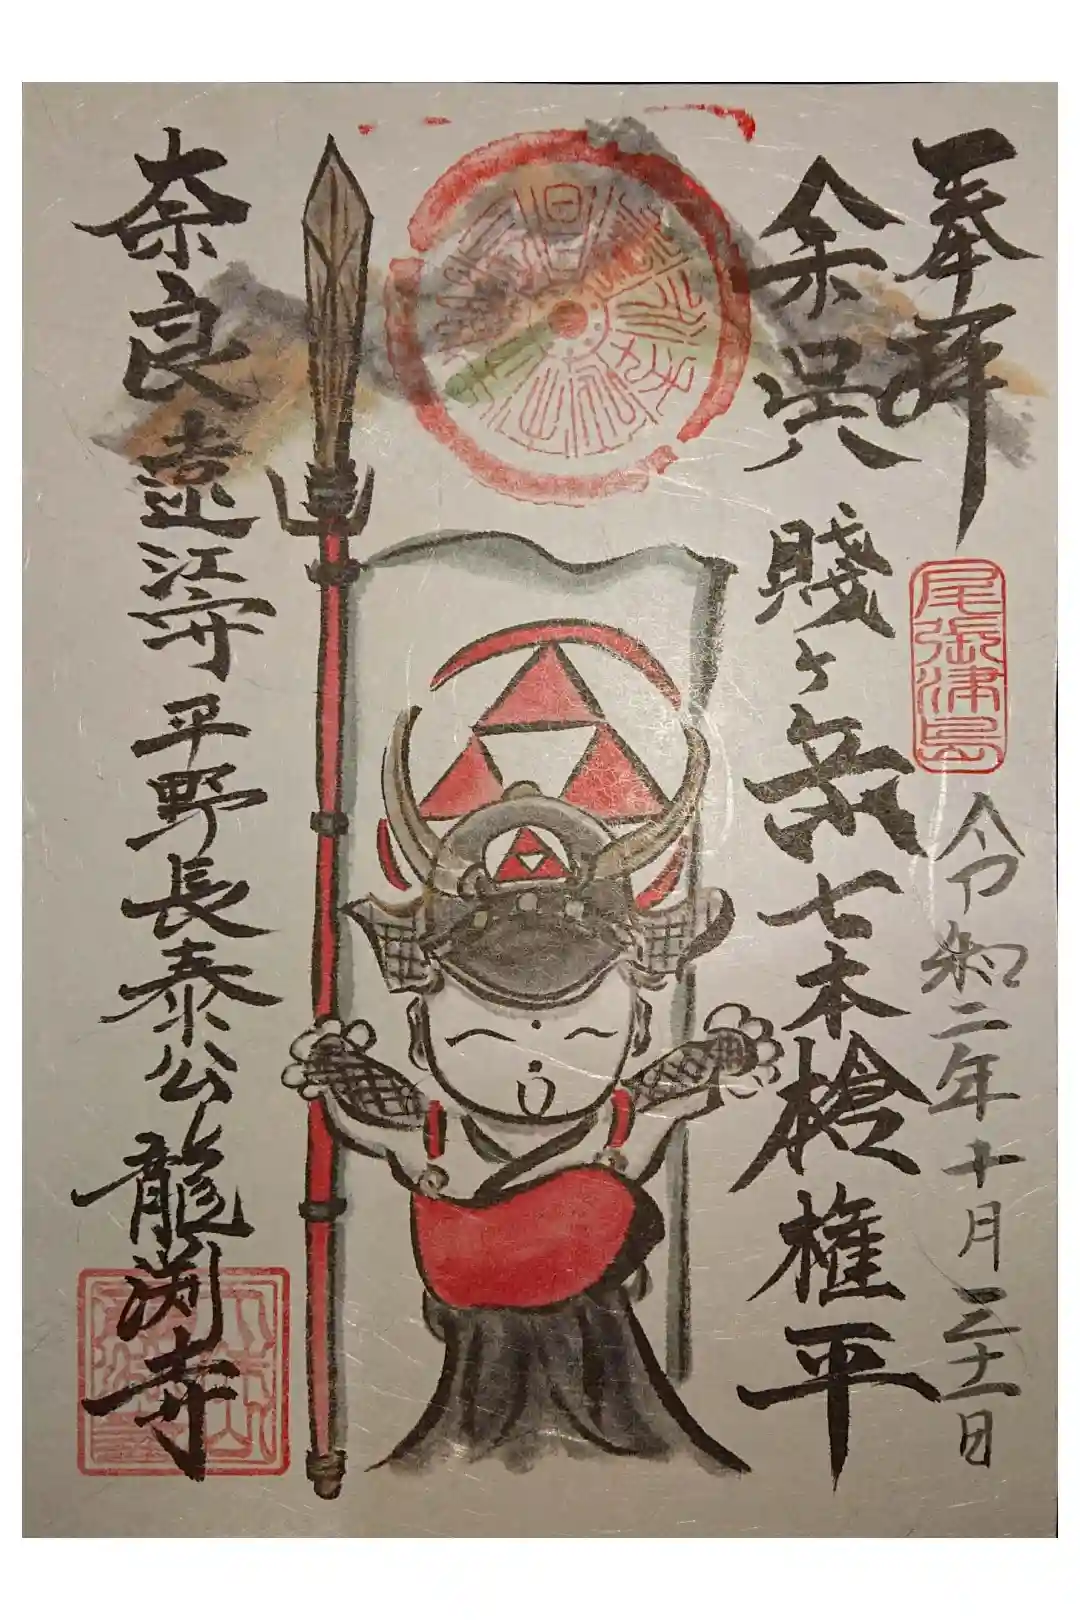 奉拝
尾張津島
令和二年十月三十一日
余呉 賤ヶ岳七本槍権平
奈良遠江守平野長泰公 龍渕寺